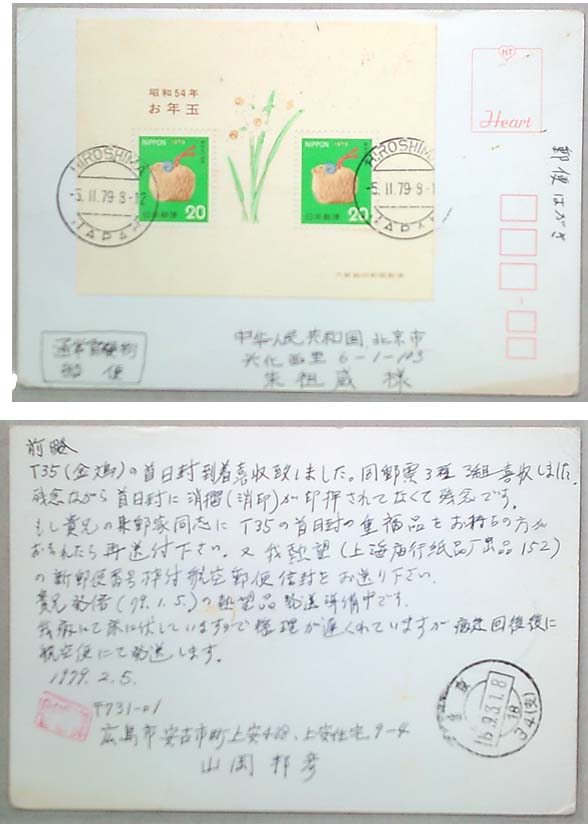 昭和54年
お年玉
NIPPON 1979
日本郵便 20
NIPPON 1979
日本郵便 20
HIROSHIMA
-5.II.79 8-12
JAPAN
HIROSHIMA
-5.II.79 8-1
JAPAN
HT
Heart
郵便はがき
中华人民共和国、北京市
兴化西里 6-1-103
朱祖威 様
前略
T35(金鶏)の首日封到着喜収致しました。同郵票3種3組喜収しました。
残念ながら首日封に消摺(消印)が印押されてなくて残念です。
もし貴兄の集郵家同志に T35の首日封の重複品をお持ちの方が
おられたら再送付下さい。又我熱望(上海 品 152)
の新郵便番号枠付航空郵便信封をお送り下さい。
貴兄発信(79.1.5.)の熱望品発送準備中です。
我病にて床に伏していますので整理が遅くれていますが病気回復後に
航空便にて発送します。
1979.2.5.
〒731-01
広島市安古市町上安428、上安住宅 9-4
山岡邦彦